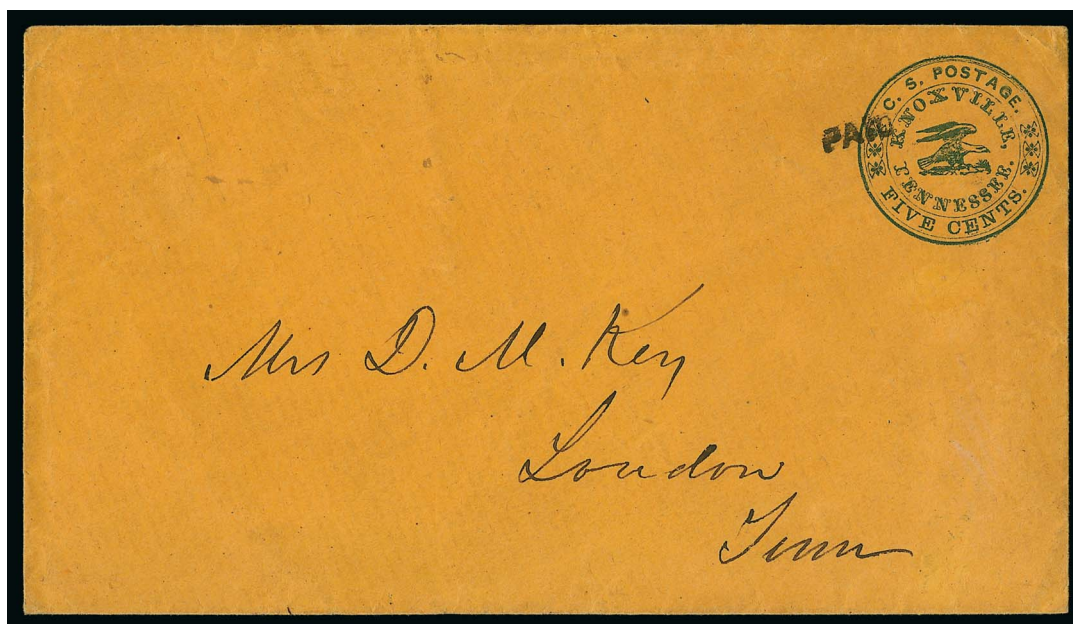 C. S. POSTAGE.
KNOXVILLE,
TENNESSEE.
FIVE CENTS.
PAID
Mrs D. M. Key
Loudon
Tenn